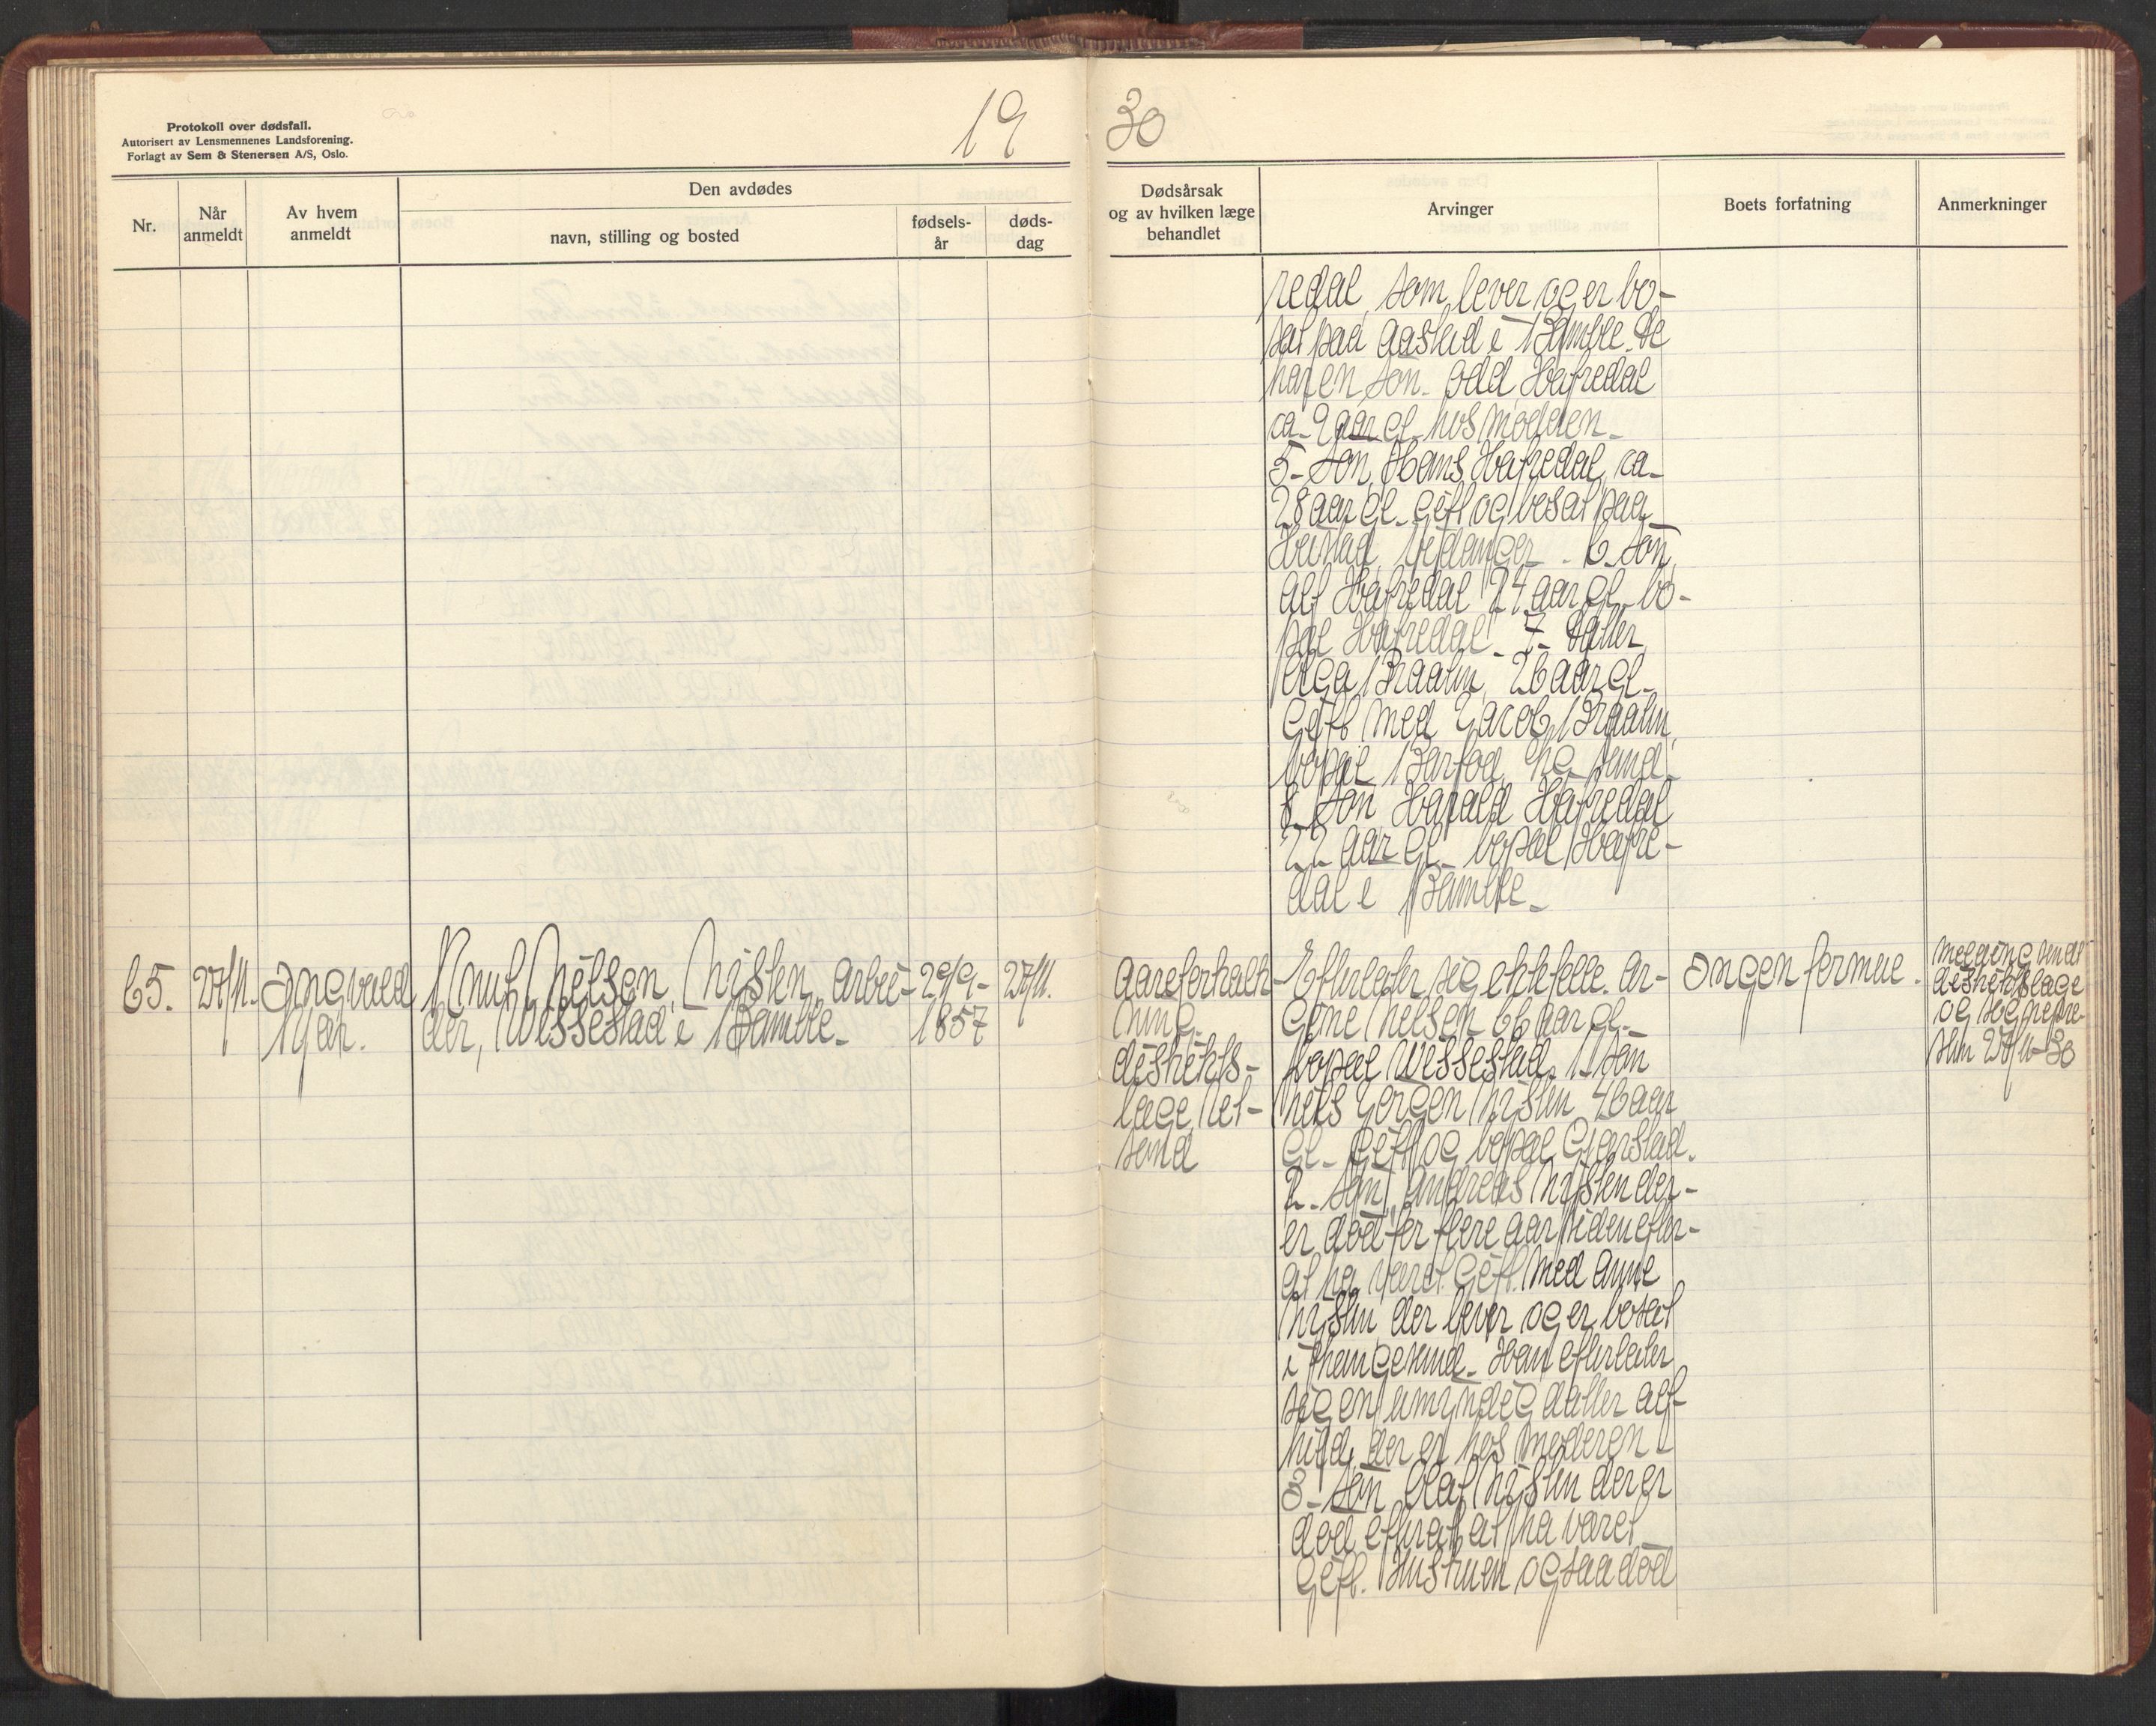 19 30
Protokoll over dødsfall.
Autorisert av Lensmennenes Landsforening.
Forlagt av Sem & Stenersen A/S, Oslo.
Nr.
Når
anmeldt
Av hvem
anmeldt
Den avdødes
navn, stilling og bosted
fødsels-
år
døds-
dag
Dødsårsak
og av hvilken læge
behandlet
Arvinger
Boets forfatning
Anmerkninger
redal, som lever og er bo-
sat paa Aasstad i Bamble. De
har en søn Odd Hafredal
ca. 9 aar gl. hos modden.
5- Søn Hans Hafredal, ca-
28 aar gl. gift og bosat paa
Heistad, Eidanger. 6 Søn
Alf Hafredal 24 aar gl. bo-
sat Hafredal. 7- datter
Olga Braaten, 26 aar gl.
gift med Jacob Braaten,
bopæl
8- Søn Harald Hafredal
22 aar gl. bopæl Hafre-
dal i Bamble.
65.
27/11.
Ingvald
Knut Nilsen, arbei-
der, i Bamble.
29/9-
1857
27/11.
Aareforkalk-
ning.
distrikts-
læge
Efterlater sig ektefelle. Ar-
Gine Nilsen 66 aar gl.
bopæl 1. Søn
Nils Jørgen 46 aar
gl. Gift og bopæl
2. Søn, Andreas der
er død for flere aar siden efter
at ha været Gift med Anne
der lever og er bosat
i Han efterlater
sig en umyndig datter Alf-
hild, der er hos moderen
3- Søn Olaf der er
død efterat at ha været
Gift. Hustruen ogsaa død
Ingen formue.
Melding sendt
distriktslæge
og
27/11-30